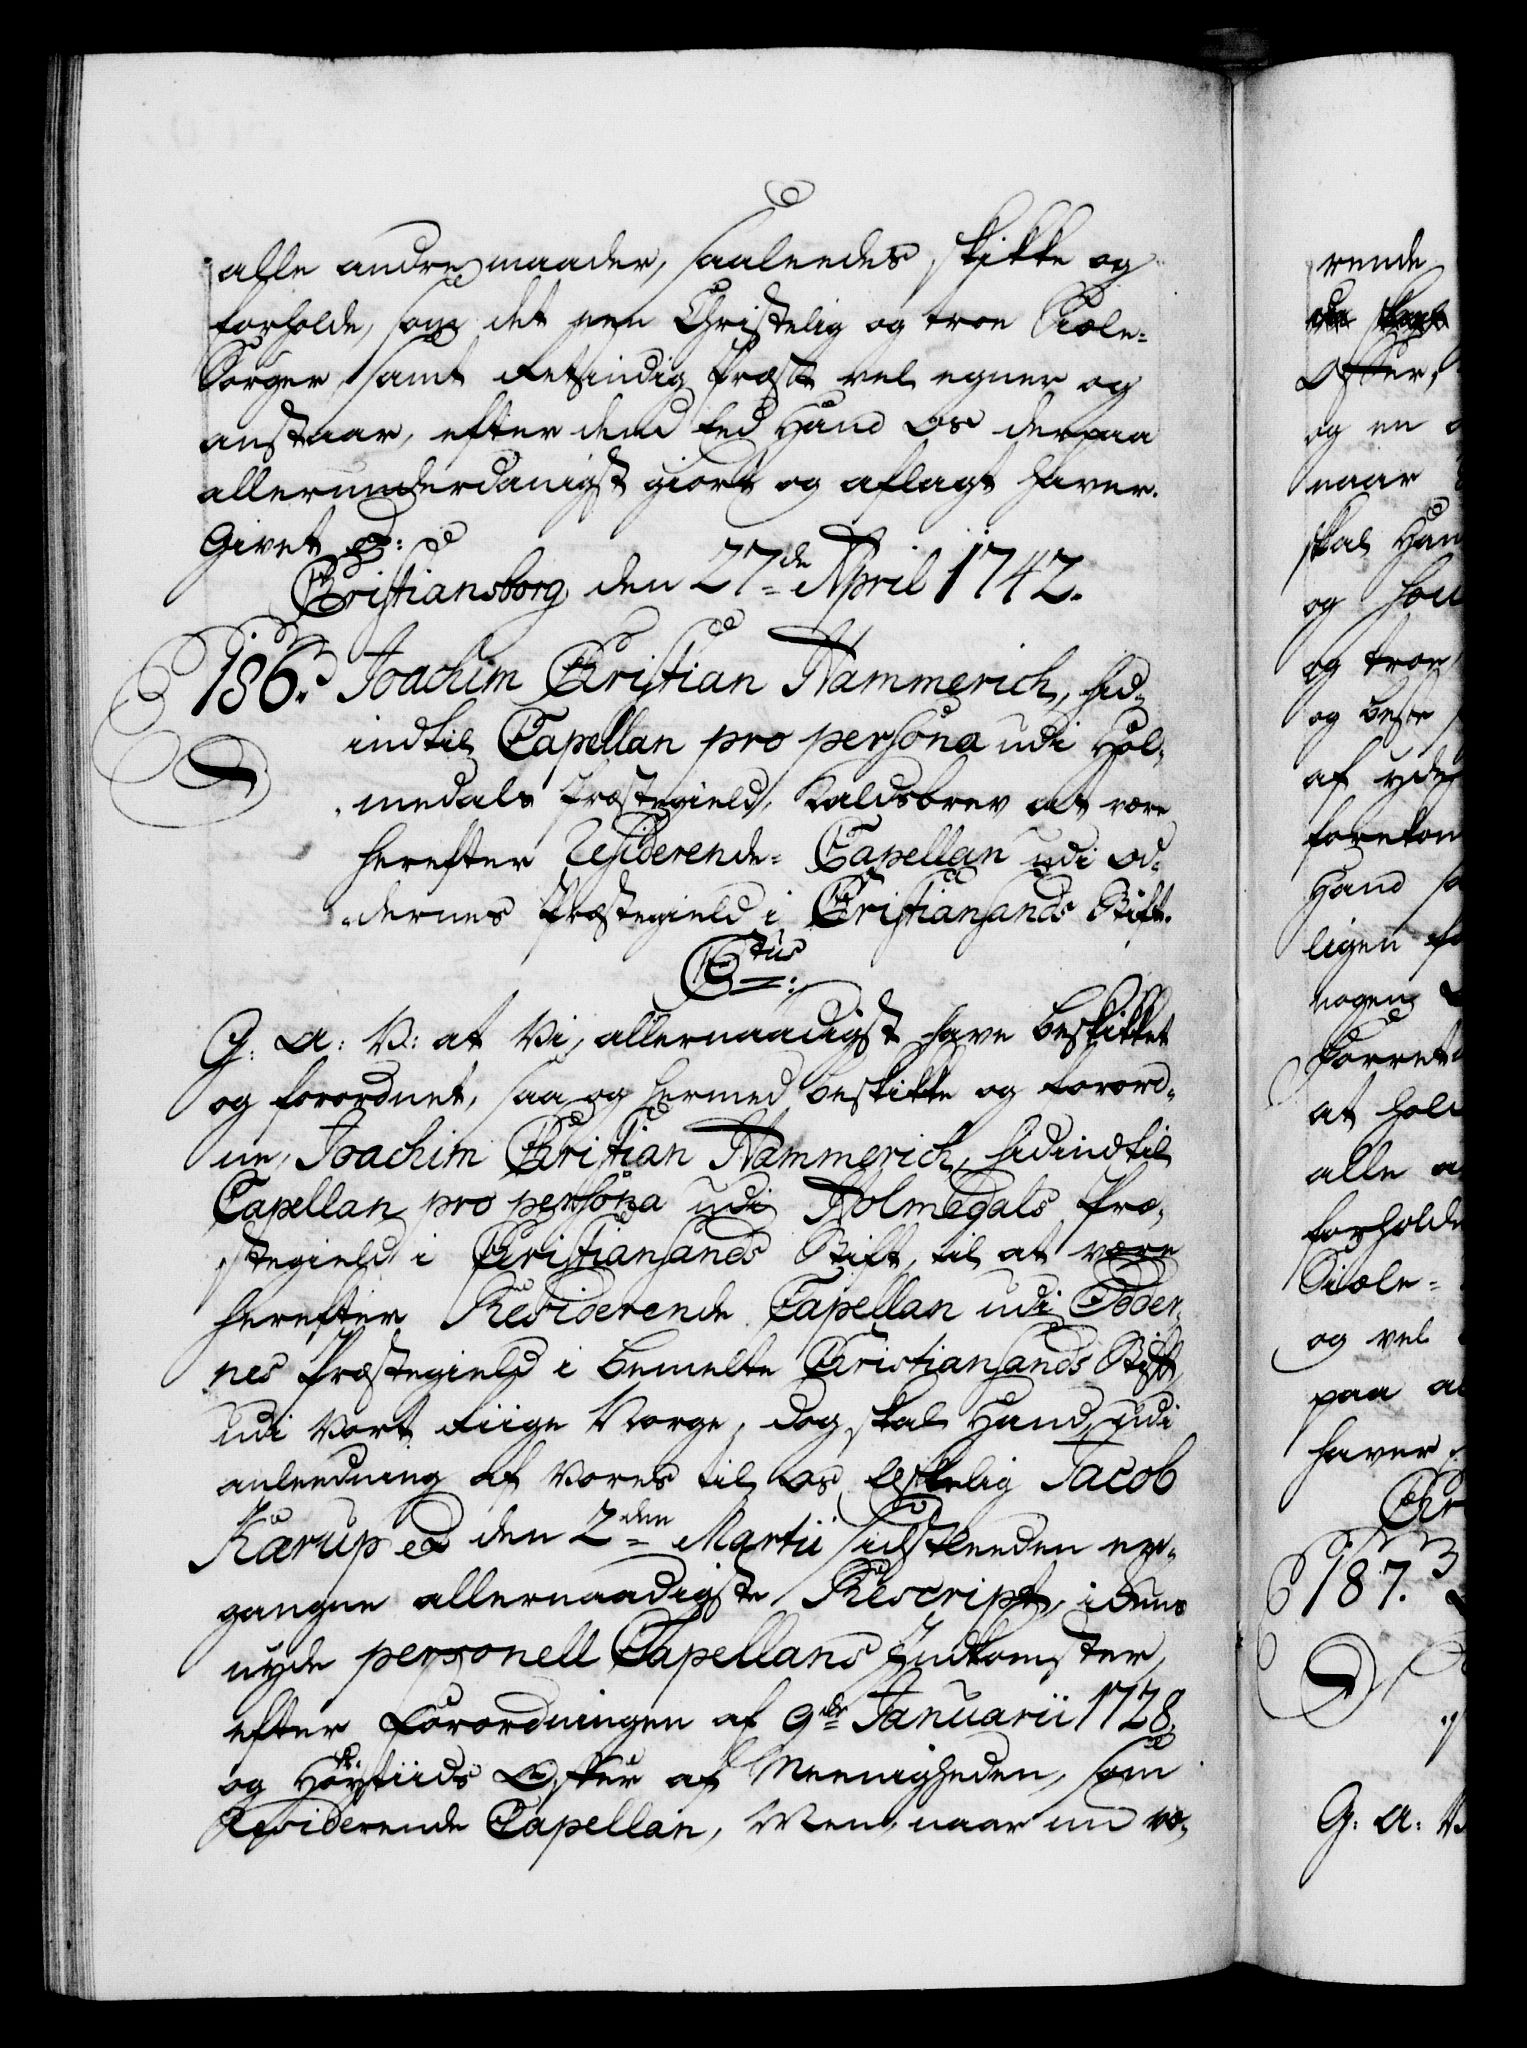 alle andre maader, saaleedes skikke og
forholde, som det een Christelig og troe Siæle-
Sørger, samt retsindig Præst vel egner og
anstaar, efter dend Eed Hand Os derpaa
allerunderdanigst giort og aflagt haver.
Givet p:
Christiansborg den 27de April 1742.
186. Joachim Christian Hammerich, hid-
indtil Capellan pro persona udi Hol-
medals Præstegield, Kaldsbrev at være
herefter Residerende-Capellan udi Od-
dernes Præstegield i Christiansands Stift.
G. A. V: at Vi allernaadigst have beskikket
og forordnet, saa og hermed beskikke og forord-
ne, Joachim Christian Hammerich, hidindtil
Capellan pro persona udi Holmedals Præ-
stegield i Christiansands Stift, til at være
herefter Residerende Capellan udi Odder-
nes Præstegield i bemelte Christiansands Stift
udi Vort Riige Norge, dog skal Hand, udi
anleedning af Vores til Os elskelig Jacob
Kærup den 2den Martii sidstleeden er-
gangne allernaadigste Rescript, iduns
nyde personell Capellans Indkomster,
efter Forordningen af 9de Januarii 1728.
og Høytiids Offer af Meenigheden, som
Residerende Capellan, Men, naar nu væ-
rende
Offer,
og en
naar
skal Han
og
og troe
og beste
af yde
forekom
Hand sa
ligen fo
nogen
Forret
at hol
alle a
forholde
Siæle-
og vel
paa a
haver
Chr
187.
G: A: V